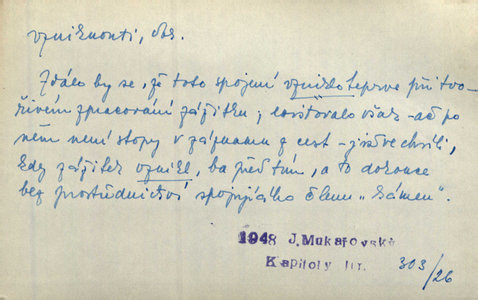 vzniknouti, dok.
Zdálo by se, že toto spojení vzniklo teprve při tvo-
řivém zpracování zážitku; existovalo však – ač po
něm není stopy v záznamu z cest – již ve chvíli,
kdy zážitek vznikl, ba před tím, a to dokonce
bez prostřednictví spojujícího členu „kámen".
1948 J. Mukařovský
Kapitoly III. 303/26